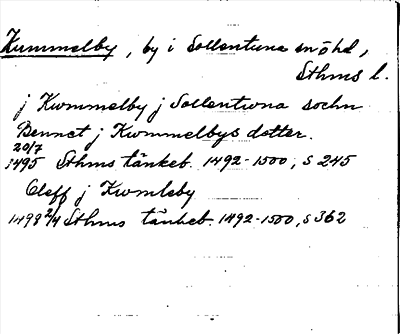 Kummelby, by i Sollentuna snöhd,
Sthms l.
j Kwmmelby j Sollentwna sochn
Bennet j Kwmmelbys dotter.
20/7
1495 Sthms tänkeb. 1492-1500, s 245
Oleff j Kwmleby
1498 2/4 Sthms tänkeb. 1492-1500, s 362